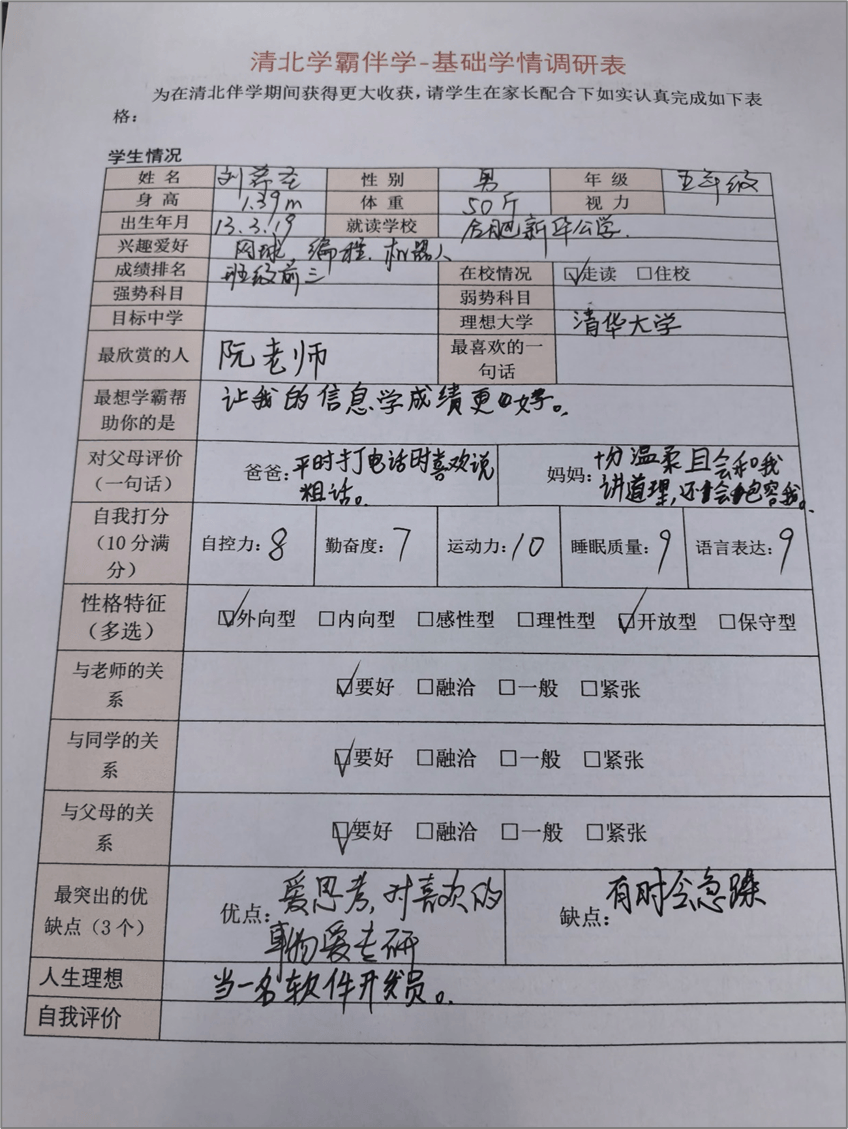 清北学霸伴学-基础学情调研表
为在清北伴学期间获得更大收获，请学生在家长配合下如实认真完成如下表
格：
学生情况
姓 名 刘 性 别 男 年 级 五年级
身 高 1.39m 体 重 50斤 视 力
出生年月 13.3.19 就读学校 合肥新华公学.
兴趣爱好 网球、编程、机器人
成绩排名 班级前三 在校情况 ☑走读 □住校
强势科目 弱势科目
目标中学 理想大学 清华大学
最欣赏的人 阮老师 最喜欢的一
句话
最想学霸帮 让我的信息学成绩更好。
助你的是
对父母评价 爸爸：平时打电话时喜欢说 妈妈：十分温柔且会和我
（一句话） 粗话。 讲道理，还会包容我。
自我打分
（10分满 自控力：8 勤奋度：7 运动力：10 睡眠质量：9 语言表达：9
分）
性格特征 ☑外向型 □内向型 □感性型 □理性型 ☑开放型 □保守型
（多选）
与老师的关 ☑要好 □融洽 □一般 □紧张
系
与同学的关 ☑要好 □融洽 □一般 □紧张
系
与父母的关 ☑要好 □融洽 □一般 □紧张
系
最突出的优 优点：爱思考，对喜欢的 缺点：有时会急躁
缺点（3个） 事物爱专研
人生理想 当一名软件开发员。
自我评价